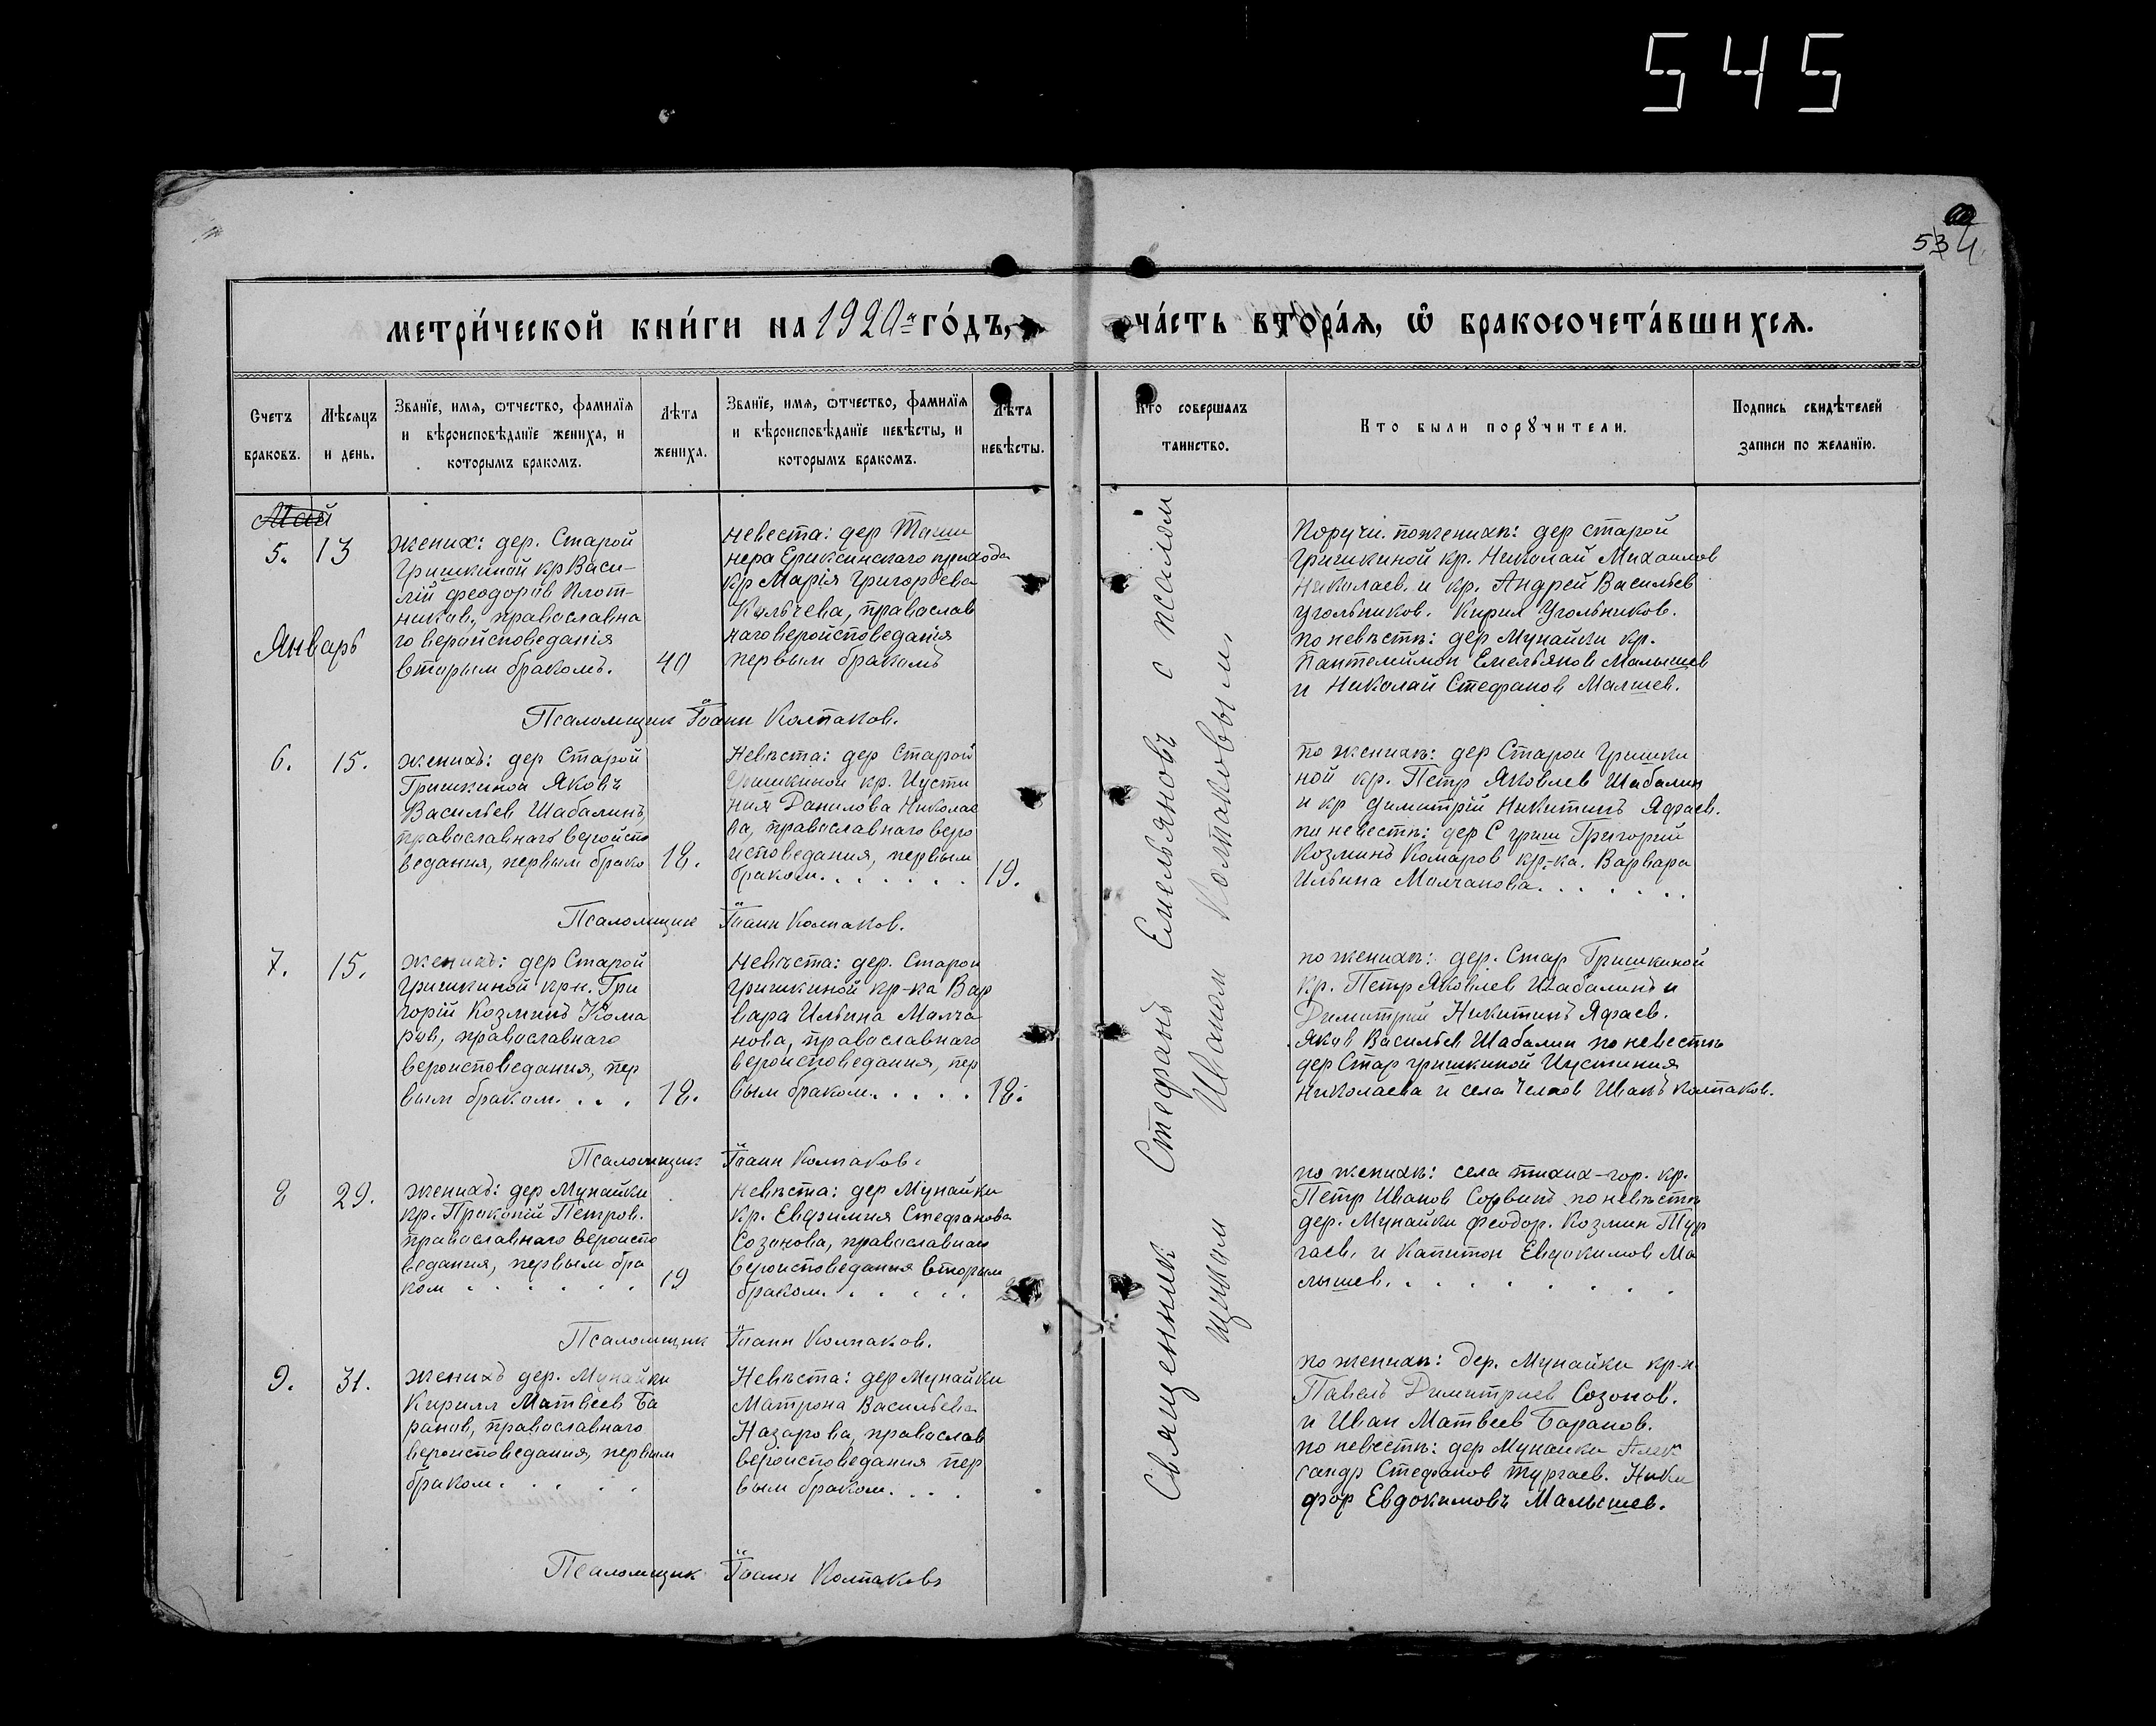 545
534
метри́ческой кни́ги на 1920 го́дъ,
ча́сть втора́я, ѡ҆ бракосочета́вшихся.
Счетъ
браковъ.
Мѣсяцъ
и день.
Званїе, имя, ѿчество, фамилїя
и вѣроисповѣданїе жениха, и
которымъ бракомъ.
Лѣта
жениха.
Званїе, имя, ѿчество, фамилїя
и вѣроисповѣданїе невѣсты, и
которымъ бракомъ.
Лѣта
невѣсты.
Кто совершалъ
таинство.
Кто были порꙋчители.
Подпись свидѣтелей
записи по желанїю.
Май
5. 13
Январь
жених: дер. Старой
Гришкиной кр Васи-
лій Феодоров Плот-
ников, православна
го веройсповеданія
вторым бракомъ.
40
невеста: дер
нера Ериксинского прихода
кр Марія Григорьева
Кальчева, православ
наго веройсповеданія
первым бракомъ
Поручи. по женихѣ: дер старой
Гришкиной кр. Николай Михаилов
Николаев. и кр. Андрей Васильев
Угольников. Кирил Угольников.
по невѣстѣ: дер Мунайки кр.
Пантелиймон Емельянов Малышев
и Николай Стефанов Малшев.
Псаломщик Їоанн Колпаков.
6. 15.
женихъ: дер Старой
Гришкиной Яковъ
Васильев Шабалинъ,
православнаго веройспо
ведания, первым брако
18.
Невѣста: дер Старой
Гришкиной кр. Иусти
ния Данилова Никола
ва, православнаго веро
исповедания, первым
браком. . . . . . .
19.
по женихѣ: дер Старой Гришки
ной кр. Петр Яковлев Шабалин
и кр Димитрій Никитинъ Яфаев.
по невестѣ: дер С гриш Григорий
Козминъ Комаров кр-ка. Варвара
Ильина Молчанова. . . . . . .
Псаломщик Їоанн Колпаков.
7. 15.
женихъ: дер Старой
Гришкиной крн. Гри
горій Козминъ Кома
ров, православнаго
вероисповедания, пер
вым браком. . . .
18.
Невѣста: дер. Старой
Гришкиной кр-ка Вар
вара Ильина Малча
нова, православнаго
вероисповедания, пер
вым браком. . . . .
18.
по женихѣ: дер. Стар Гришкиной
кр. Петр Яковлев Шабалинъ и
Димитрий Никитинъ Яфаев.
Яков Васильев Шабалин по невестѣ
дер Стар гришкиной Иустиния
Николаева и села Иванъ Колпаков.
Псаломщик Їоанн Колпаков.
8 29.
женихъ: дер Мунайки
кр. Пракопій Петров.
православнаго вероиспо
ведания, первым бра
ком . . . . . .
19
невѣста: дер Мунайки
Кр. Евфимия Стефанова
Созонова, православнаго
вероисповедания вторым
браком. . . . . .
по женихѣ: села тихих-гор. кр.
Петр Иванов по невѣстѣ
дер. Мунайки Феодор. Козмин Тур
гаев, и Капитон Евдокимов Ма
лышев. . . . . . . . .
Псаломщик Їоанн Колпаков.
9. 31.
женихъ дер. Мунайки
Кирилл Матвеев Ба
ранов, православнаго
вероисповедания, первым
браком. . . . .
Невѣста: дер Мунайки
Матрона Васильева
Назарова, православ
вероисповедания пер
вым браком. . . .
по женихѣ: дер. Мунайки кр-н.
Павелъ Димитриев Созонов.
и Иван Матвеев Баранов.
по невестѣ: дер Мунайки Алек
сандр Стефанов Тургаев. Ники
фор Евдокимовъ Малышев.
Псаломщик Їоанн Колпаковъ
Священник Стефанъ Емельяновъ с псалом
щиком Иваном Колпаковым,